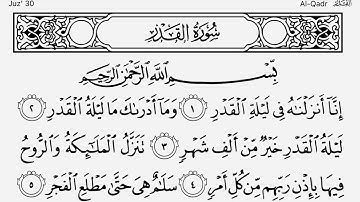 Juz' 30
Al-Qadr
سُورَةُ القَدْرِ
بِسْمِ ٱللَّهِ ٱلرَّحْمَٰنِ ٱلرَّحِيمِ
إِنَّآ أَنزَلْنَٰهُ فِى لَيْلَةِ ٱلْقَدْرِ ١ وَمَآ أَدْرَىٰكَ مَا لَيْلَةُ ٱلْقَدْرِ ٢
لَيْلَةُ ٱلْقَدْرِ خَيْرٌ مِّنْ أَلْفِ شَهْرٍ ٣ تَنَزَّلُ ٱلْمَلَٰٓئِكَةُ وَٱلرُّوحُ
فِيهَا بِإِذْنِ رَبِّهِم مِّن كُلِّ أَمْرٍ ٤ سَلَٰمٌ هِىَ حَتَّىٰ مَطْلَعِ ٱلْفَجْرِ ٥